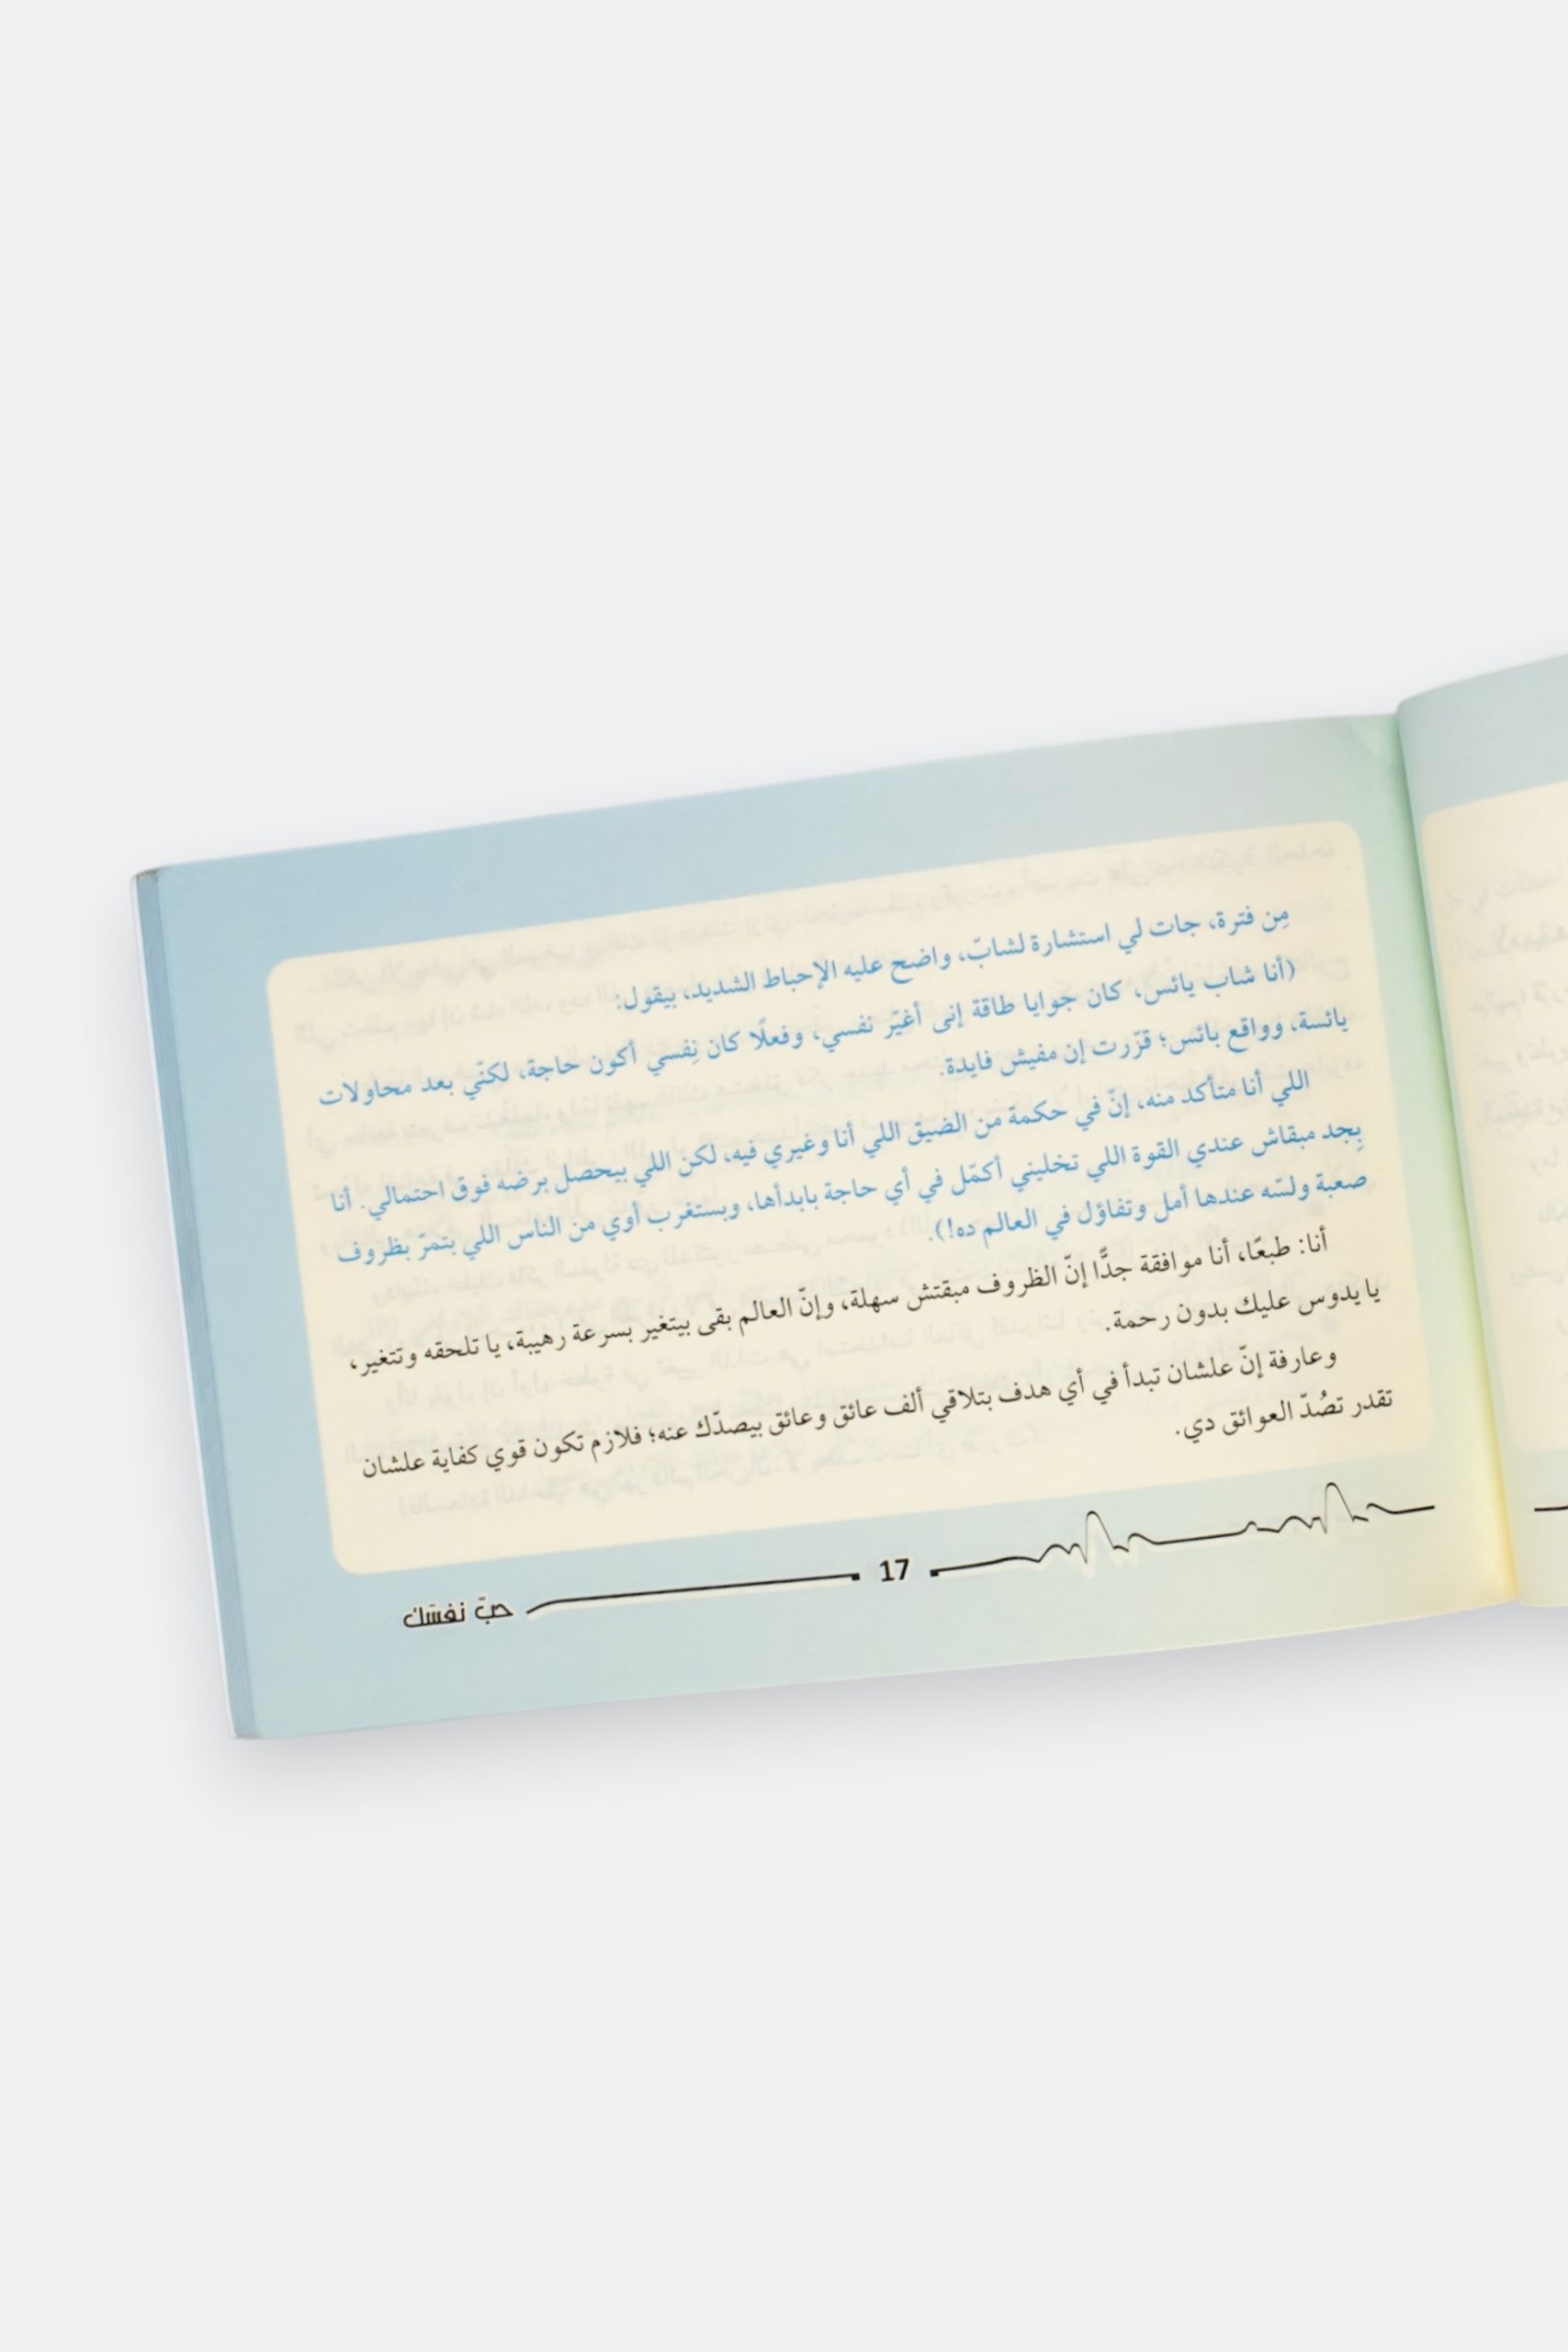 مِن فترة، جات لي استشارة لشابّ، واضح عليه الإحباط الشديد، بيقول:
(أنا شاب يائس، كان جوايا طاقة إنى أغيّر نفسي، وفعلًا كان نِفسي أكون حاجة، لكنّي بعد محاولات
يائسة، وواقع بائس؛ قرّرت إن مفيش فايدة.
اللي أنا متأكد منه، إنّ في حكمة من الضيق اللي أنا وغيري فيه، لكن اللي بيحصل برضه فوق احتمالي. أنا
بِجد مبقاش عندي القوة اللي تخليني أكمّل في أي حاجة بابدأها، وبستغرب أوي من الناس اللي بتمرّ بظروف
صعبة ولسّه عندها أمل وتفاؤل في العالم ده!).
أنا: طبعًا، أنا موافقة جدًّا إنّ الظروف مبقتش سهلة، وإنّ العالم بقى بيتغير بسرعة رهيبة، يا تلحقه وتتغير،
يا يدوس عليك بدون رحمة.
وعارفة إنّ علشان تبدأ في أي هدف بتلاقي ألف عائق وعائق بيصدّك عنه؛ فلازم تكون قوي كفاية علشان
تقدر تصُدّ العوائق دي.
17
حبّ نفسَك